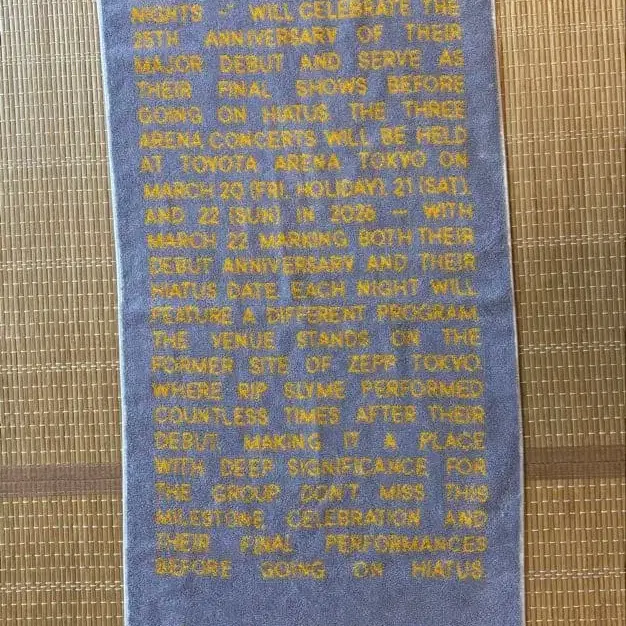 NIGHTS -" WILL CELEBRATE THE
25TH ANNIVERSARY OF THEIR
MAJOR DEBUT AND SERVE AS
THEIR FINAL SHOWS BEFORE
GOING ON HIATUS. THE THREE
ARENA CONCERTS WILL BE HELD
AT TOYOTA ARENA TOKYO ON
MARCH 20 (FRI, HOLIDAY), 21 (SAT),
AND 22 (SUN) IN 2026 — WITH
MARCH 22 MARKING BOTH THEIR
DEBUT ANNIVERSARY AND THEIR
HIATUS DATE. EACH NIGHT WILL
FEATURE A DIFFERENT PROGRAM.
THE VENUE STANDS ON THE
FORMER SITE OF ZEPP TOKYO,
WHERE RIP SLYME PERFORMED
COUNTLESS TIMES AFTER THEIR
DEBUT, MAKING IT A PLACE
WITH DEEP SIGNIFICANCE FOR
THE GROUP. DON'T MISS THIS
MILESTONE CELEBRATION AND
THEIR FINAL PERFORMANCES
BEFORE GOING ON HIATUS.